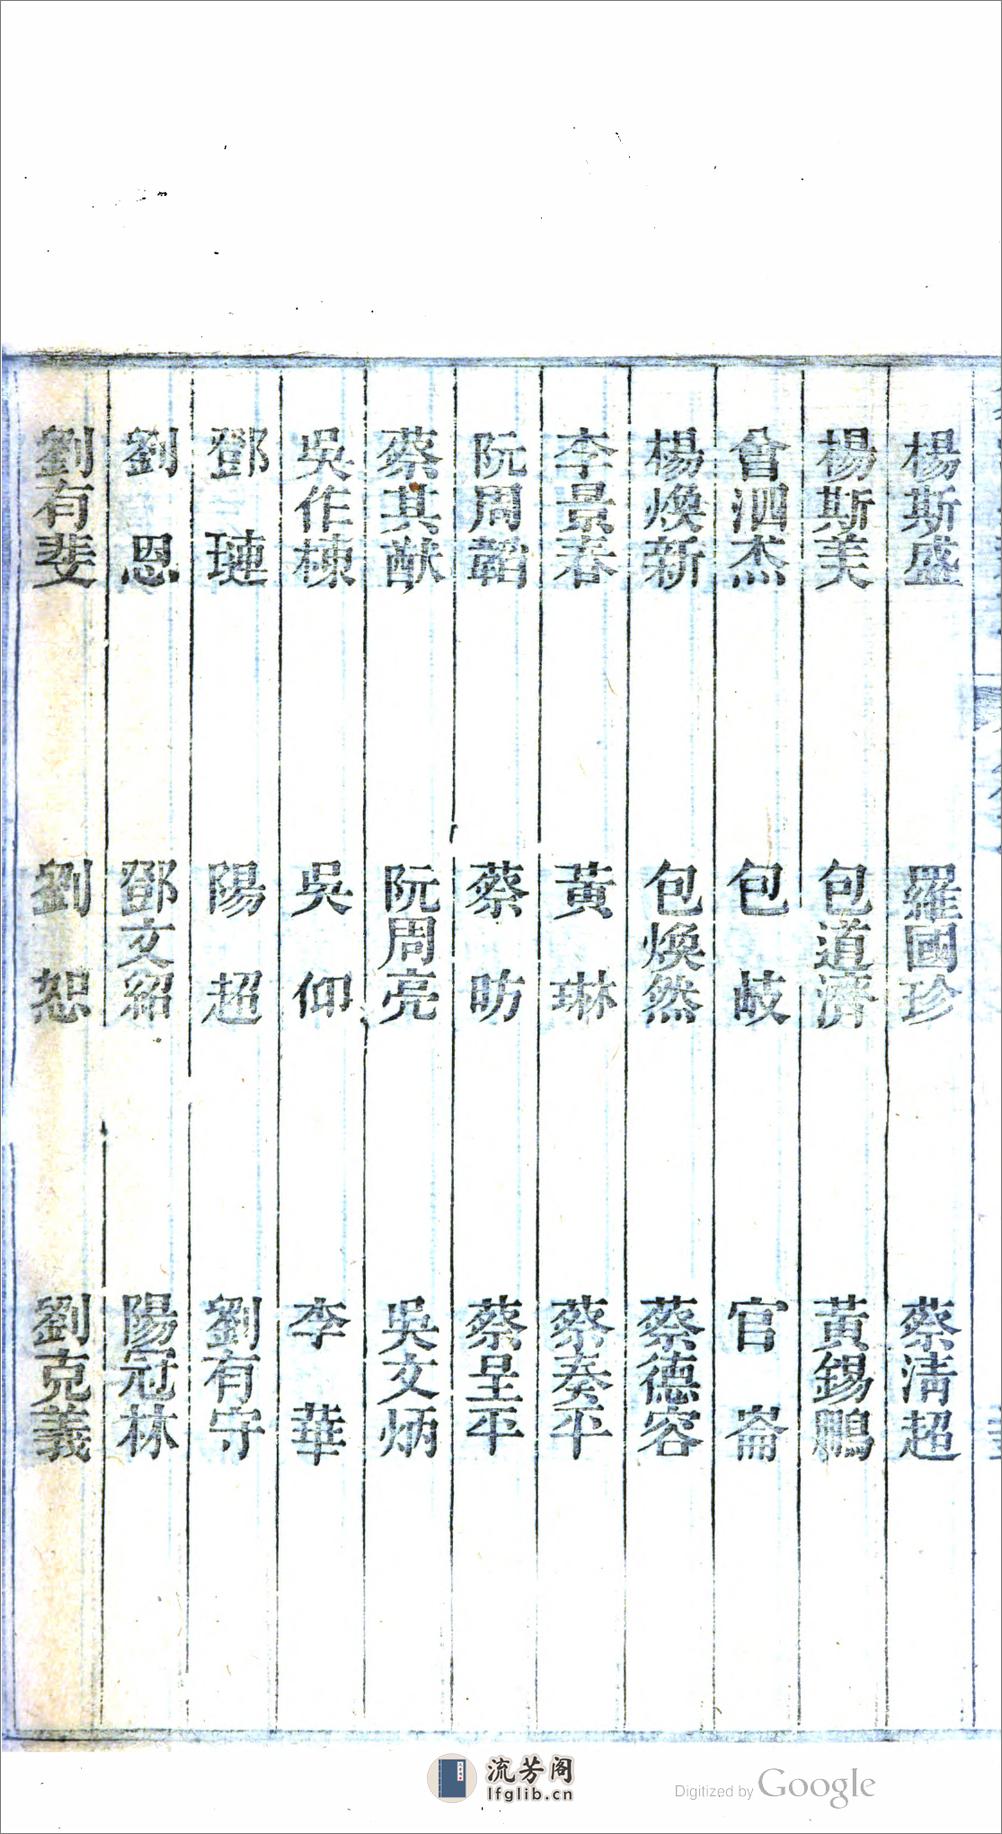 楊斯盛 羅國珍 蔡淸超
楊斯美 包道濟 黃錫鵬
曾泗杰 包岐 官崙
楊煥新 包煥然 蔡德容
李景春 黃琳 蔡奏平
阮周韜 蔡昉 蔡呈平
蔡其猷 阮周亮 吳文炳
吳作棟 吳仰 李華
鄧璉 陽超 劉有守
劉恩 鄧文紹 陽冠林
劉有斐 劉恕 劉克義
流芳阁
lfglib.cn
Digitized by Google